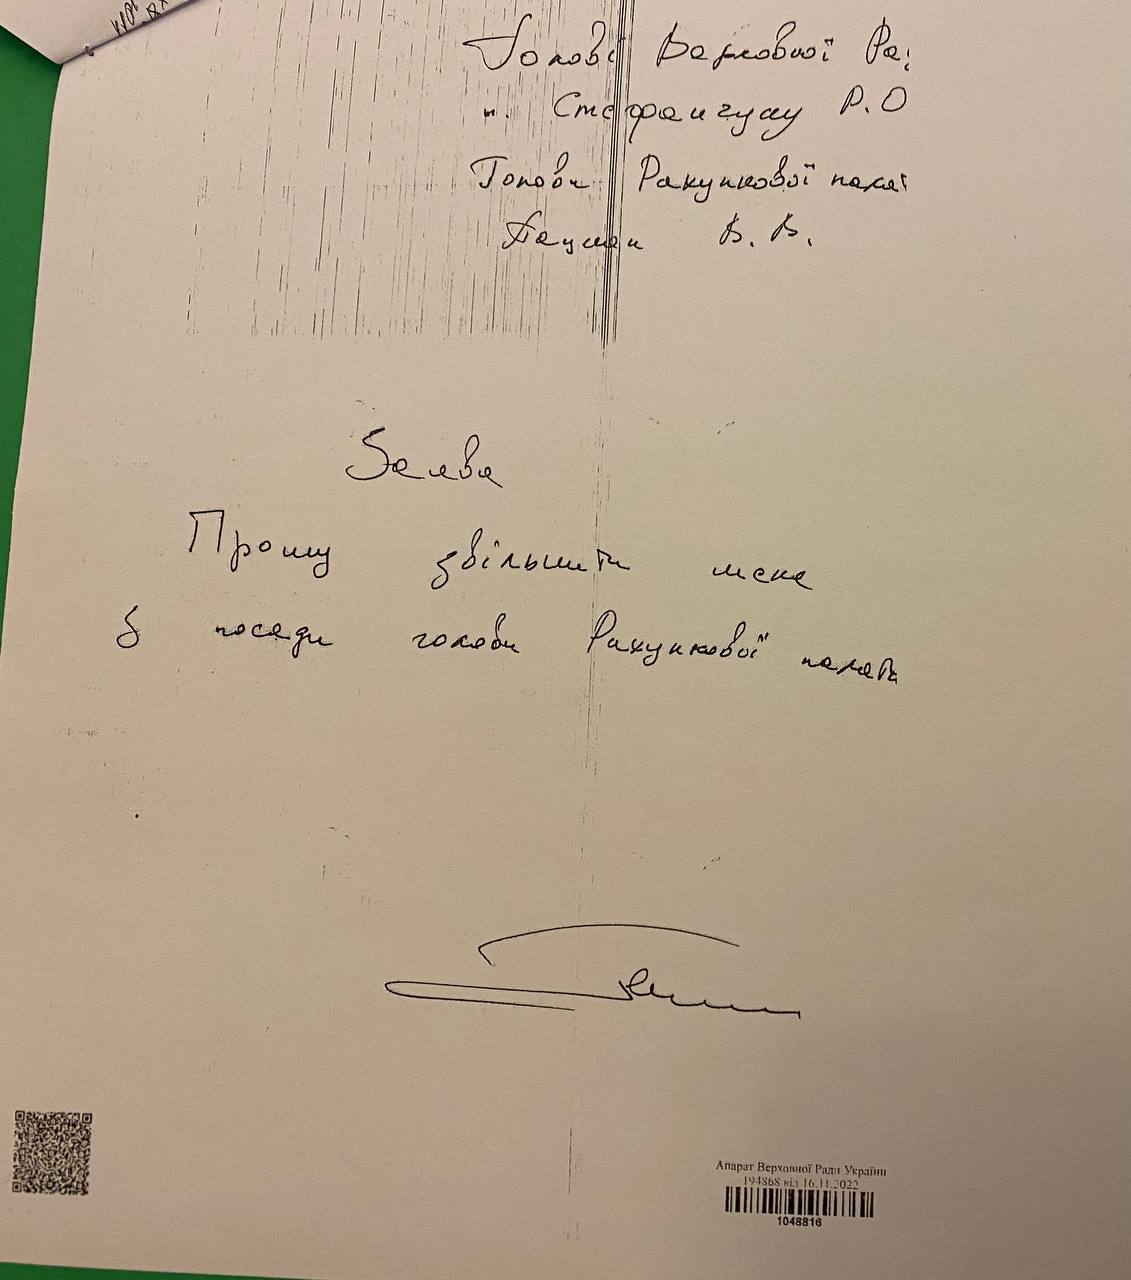 Голові Верховної Ра
п. Стефанчуку Р.О
Голови Рахункової палат
Пацкан В.В.
Заява
Прошу звільнити мене
з посади голови Рахункової палати
Апарат Верховної Ради України
194868 від 16.11.2022
1048816